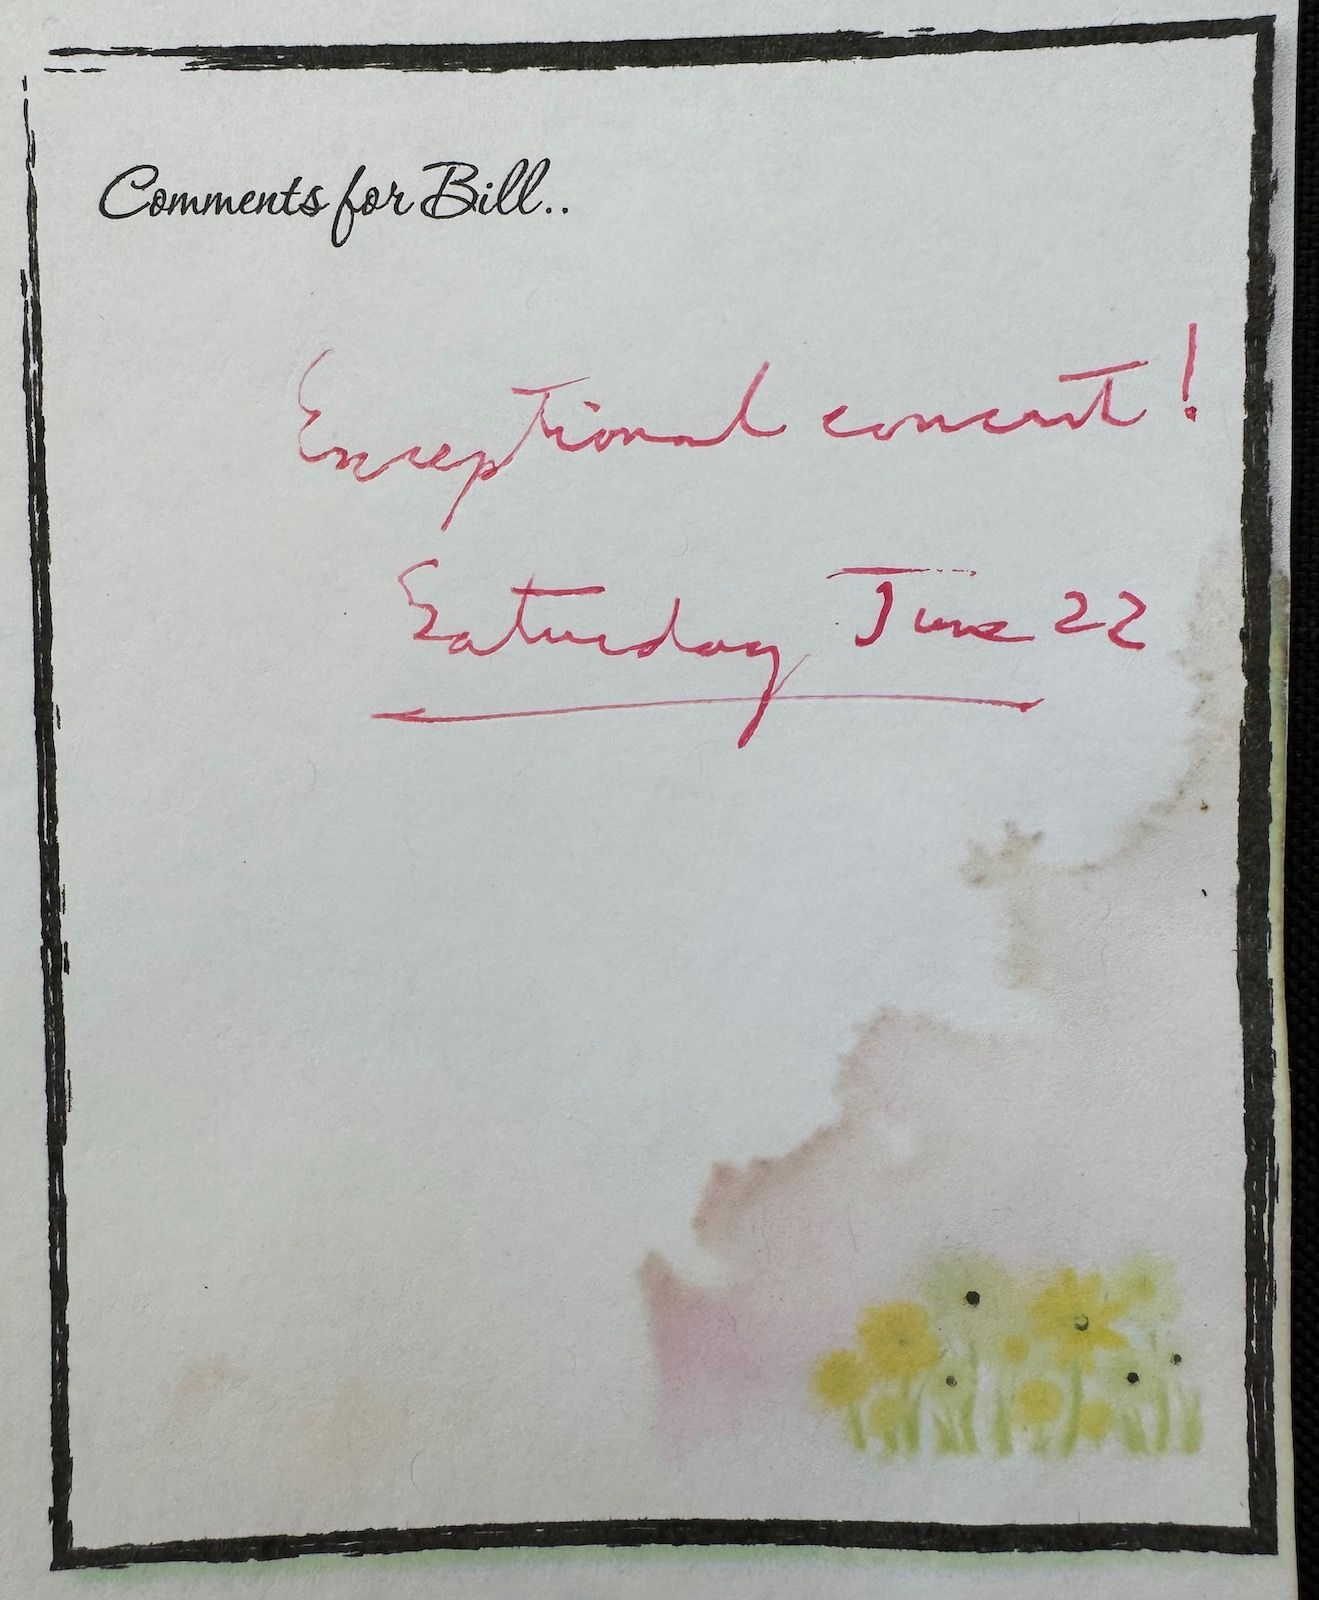 Comments for Bill..
Exceptional concert!
Saturday June 22